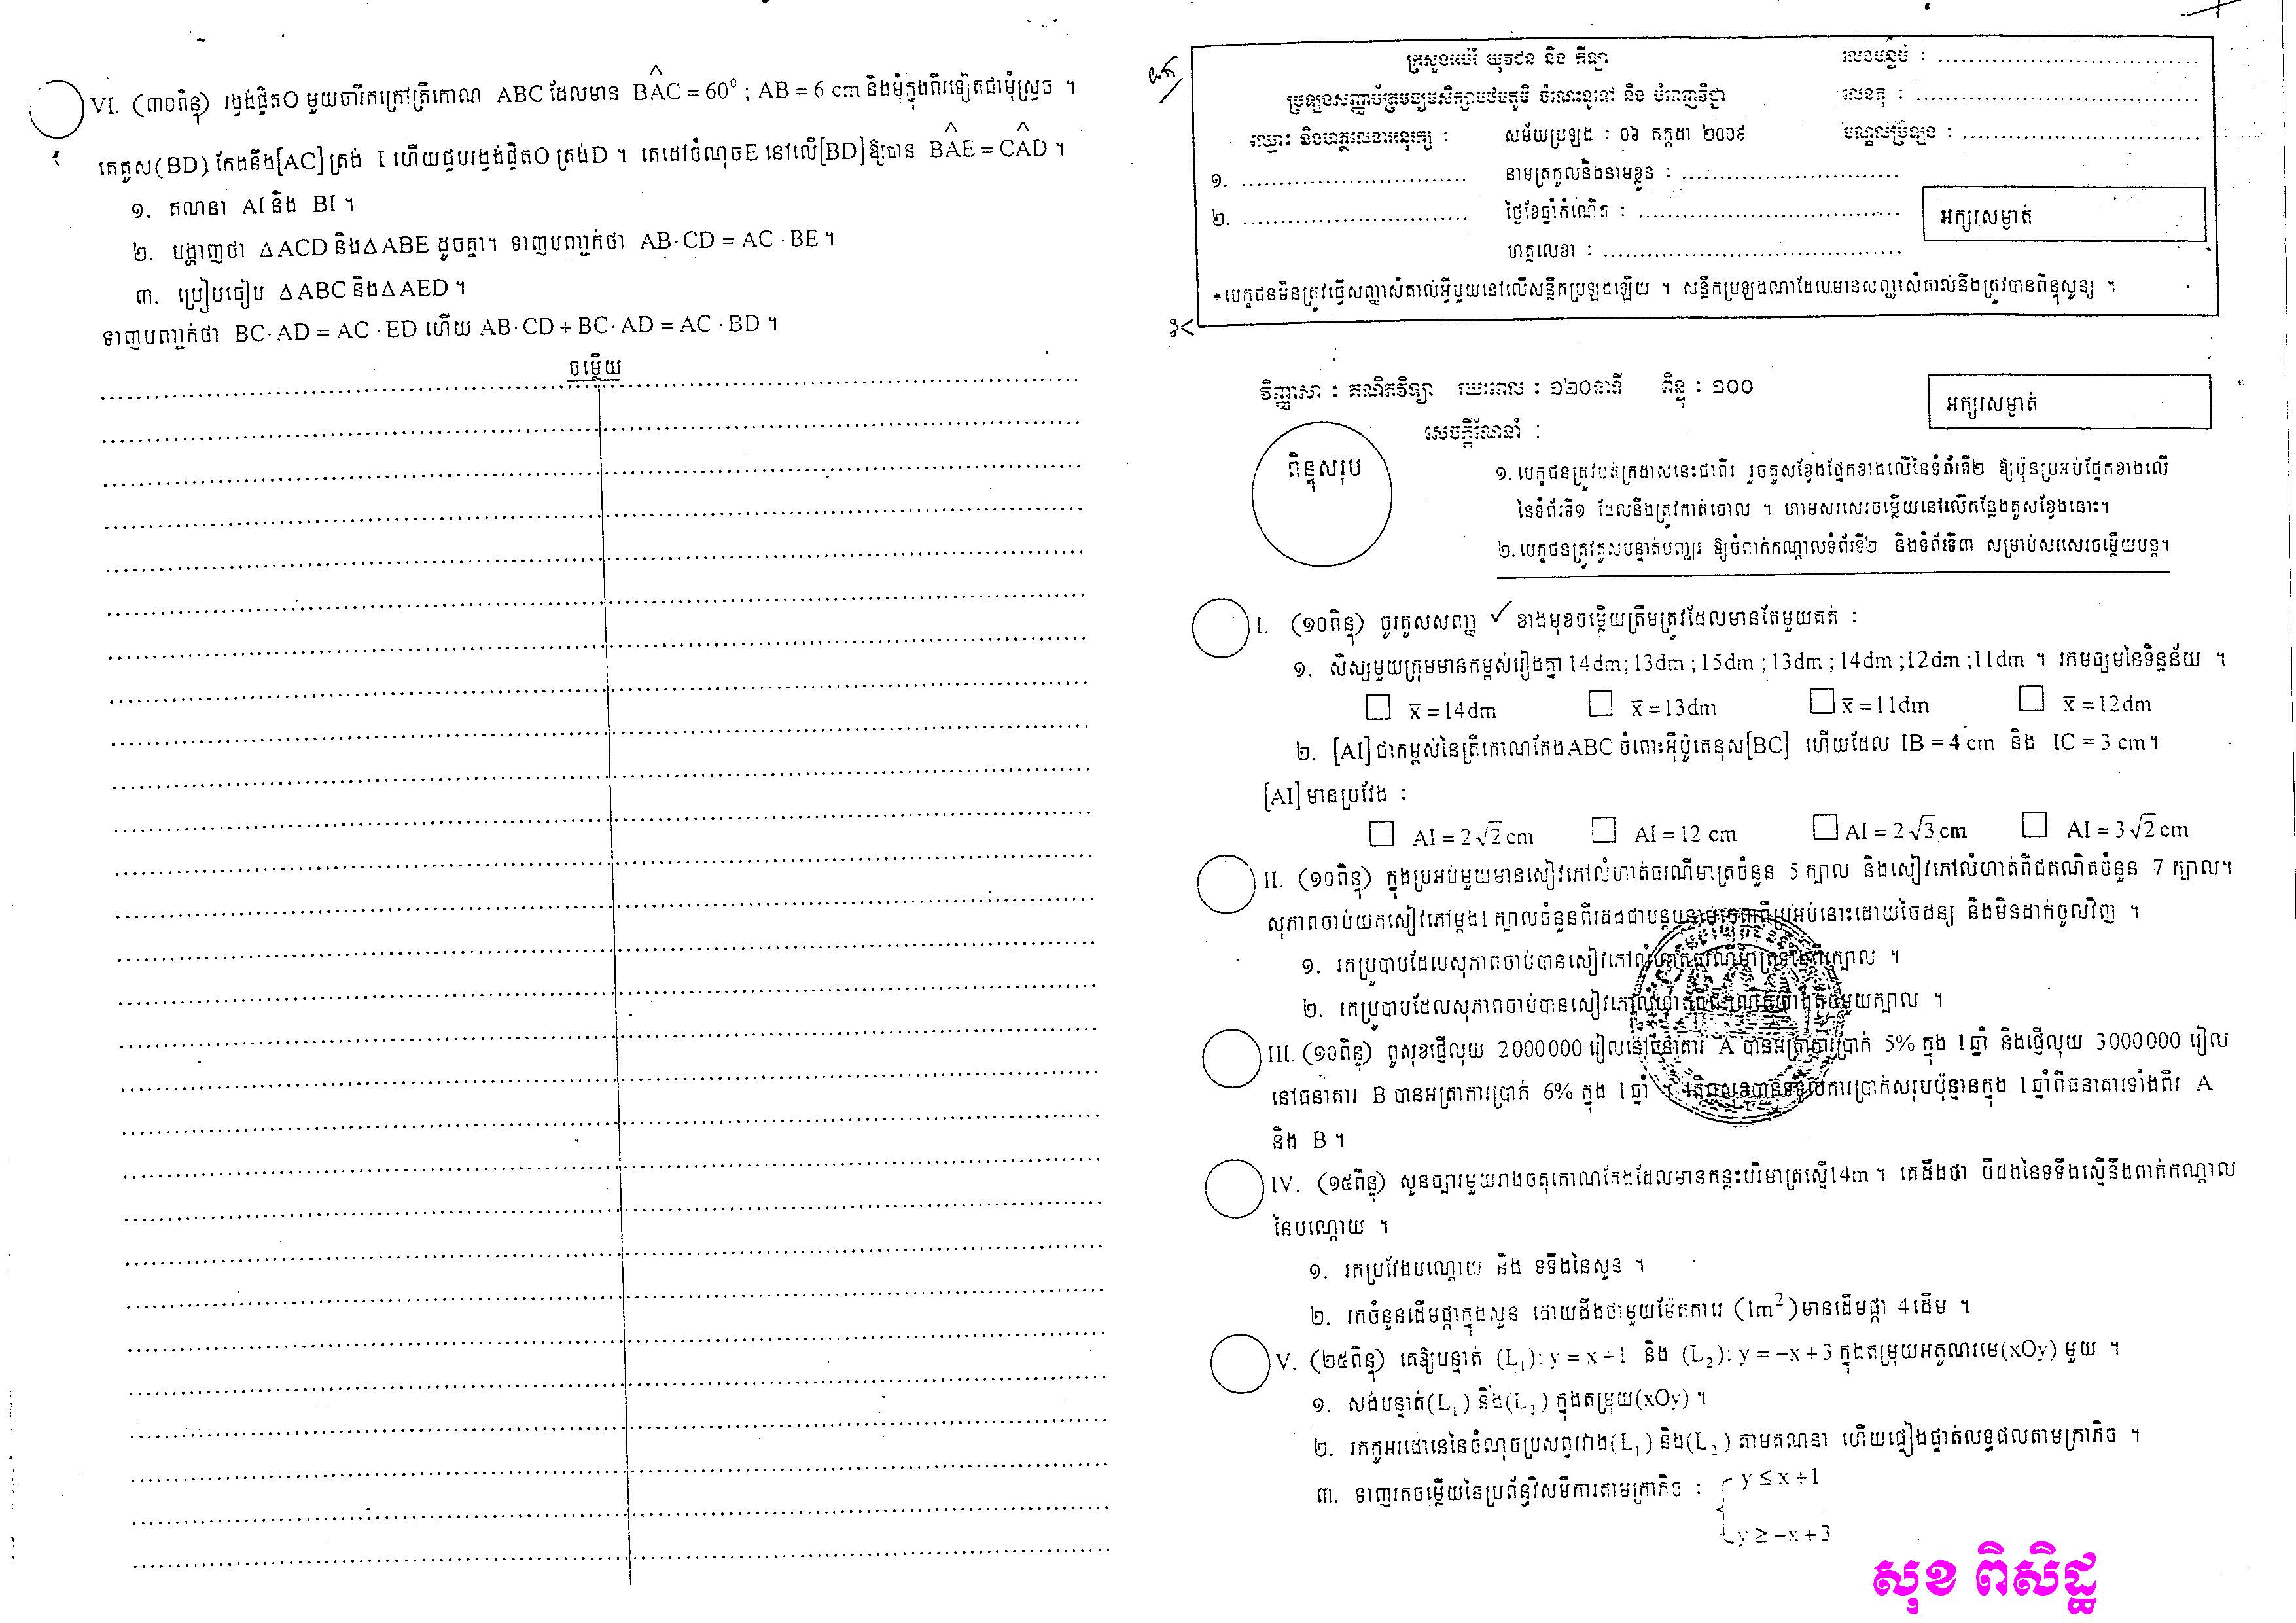 VI. (៣០ពិន្ទុ) រង្វង់ផ្ចិតO មួយចារឹកក្រៅត្រីកោណ ABC ដែលមាន BÂC = 60⁰ ; AB = 6 cm និងមុំក្នុងពីរទៀតជាមុំស្រួច ។
គេគូស(BD) កែងនឹង[AC] ត្រង់ I ហើយជួបរង្វង់ផ្ចិតO ត្រង់D ។ គេដៅចំណុចE នៅលើ[BD] ឱ្យបាន BÂE = CÂD ។
១. គណនា AI និង BI ។
២. បង្ហាញថា ΔACD និងΔABE ដូចគ្នា។ ទាញបញ្ជាក់ថា AB·CD = AC·BE ។
៣. ប្រៀបធៀប ΔABC និងΔAED ។
ទាញបញ្ជាក់ថា BC·AD = AC·ED ហើយ AB·CD + BC·AD = AC·BD ។
ចម្លើយ
ក្រសួងអប់រំ យុវជន និង កីឡា
លេខបន្ទប់ : ........................
ប្រឡងសញ្ញាបត្រមធ្យមសិក្សាបឋមភូមិ ចំណេះទូទៅ និង បំពេញវិជ្ជា
លេខតុ : ........................
ឈ្មោះ និងហត្ថលេខាអនុរក្ស :
សម័យប្រឡង : ០៦ កក្កដា ២០០៩
មណ្ឌលប្រឡង : ........................
១. ........................
នាមត្រកូលនិងនាមខ្លួន : ........................
២. ........................
ថ្ងៃខែឆ្នាំកំណើត : ........................
អក្សរសម្ងាត់
ហត្ថលេខា : ........................
*បេក្ខជនមិនត្រូវធ្វើសញ្ញាសំគាល់អ្វីមួយនៅលើសន្លឹកប្រឡងឡើយ ។ សន្លឹកប្រឡងណាដែលមានសញ្ញាសំគាល់នឹងត្រូវបានពិន្ទុសូន្យ ។
វិញ្ញាសា : គណិតវិទ្យា រយះពេល : ១២០នាទី ពិន្ទុ : ១០០
អក្សរសម្ងាត់
សេចក្តីណែនាំ :
ពិន្ទុសរុប
១. បេក្ខជនត្រូវបត់ក្រដាសនេះជាពីរ រួចគូសខ្វែងផ្នែកខាងលើនៃទំព័រទី២ ឱ្យប៉ុនប្រអប់ផ្នែកខាងលើ
នៃទំព័រទី១ ដែលនឹងត្រូវកាត់ចោល ។ ហាមសរសេរចម្លើយនៅលើកន្លែងគូសខ្វែងនោះ។
២. បេក្ខជនត្រូវគូសបន្ទាត់បញ្ឈរ ឱ្យចំពាក់កណ្តាលទំព័រទី២ និងទំព័រទី៣ សម្រាប់សរសេរចម្លើយបន្ត។
I. (១០ពិន្ទុ) ចូរគូសសញ្ញា ✓ ខាងមុខចម្លើយត្រឹមត្រូវដែលមានតែមួយគត់ :
១. សិស្សមួយក្រុមមានកម្ពស់រៀងគ្នា 14dm; 13dm ; 15dm ; 13dm ; 14dm ;12dm ;11dm ។ រកមធ្យមនៃទិន្នន័យ ។
☐ x̄ = 14dm ☐ x̄ = 13dm ☐ x̄ = 11dm ☐ x̄ = 12dm
២. [AI] ជាកម្ពស់នៃត្រីកោណកែងABC ចំពោះអ៊ីប៉ូតេនុស[BC] ហើយដែល IB = 4 cm និង IC = 3 cm។
[AI] មានប្រវែង :
☐ AI = 2√2 cm ☐ AI = 12 cm ☐ AI = 2√3 cm ☐ AI = 3√2 cm
II. (១០ពិន្ទុ) ក្នុងប្រអប់មួយមានសៀវភៅលំហាត់ធរណីមាត្រចំនួន 5 ក្បាល និងសៀវភៅលំហាត់ពីជគណិតចំនួន 7 ក្បាល។
សុភាពចាប់យកសៀវភៅម្តង1 ក្បាលចំនួនពីរដងជាបន្តបន្ទាប់ចេញពីប្រអប់នោះដោយចៃដន្យ និងមិនដាក់ចូលវិញ ។
១. រកប្រូបាបដែលសុភាពចាប់បានសៀវភៅលំហាត់ធរណីមាត្រទាំងពីរក្បាល ។
២. រកប្រូបាបដែលសុភាពចាប់បានសៀវភៅលំហាត់ពីជគណិតយ៉ាងតិចមួយក្បាល ។
III. (១០ពិន្ទុ) ពូសុខផ្ញើលុយ 2000000 រៀលនៅធនាគារ A បានអត្រាការប្រាក់ 5% ក្នុង 1 ឆ្នាំ និងផ្ញើលុយ 3000000 រៀល
នៅធនាគារ B បានអត្រាការប្រាក់ 6% ក្នុង 1 ឆ្នាំ ។ តើពូសុខបានទទួលការប្រាក់សរុបប៉ុន្មានក្នុង 1 ឆ្នាំពីធនាគារទាំងពីរ A
និង B ។
IV. (១៥ពិន្ទុ) សួនច្បារមួយរាងចតុកោណកែងដែលមានកន្លះបរិមាត្រស្មើ14m ។ គេដឹងថា បីដងនៃទទឹងស្មើនឹងពាក់កណ្តាល
នៃបណ្តោយ ។
១. រកប្រវែងបណ្តោយ និង ទទឹងនៃសួន ។
២. រកចំនួនដើមផ្កាក្នុងសួន ដោយដឹងថាមួយម៉ែតការេ (1m²) មានដើមផ្កា 4 ដើម ។
V. (២៥ពិន្ទុ) គេឱ្យបន្ទាត់ (L₁): y = x + 1 និង (L₂): y = −x + 3 ក្នុងតម្រុយអតូណរមេ(xOy) មួយ ។
១. សង់បន្ទាត់(L₁) និង(L₂) ក្នុងតម្រុយ(xOy) ។
២. រកកូអរដោនេនៃចំណុចប្រសព្វរវាង(L₁) និង(L₂) តាមគណនា ហើយផ្ទៀងផ្ទាត់លទ្ធផលតាមក្រាភិច ។
៣. ទាញរកចម្លើយនៃប្រព័ន្ធវិសមីការតាមក្រាភិច : { y ≤ x + 1
y ≥ −x + 3
សុខ ពិសិដ្ឋ